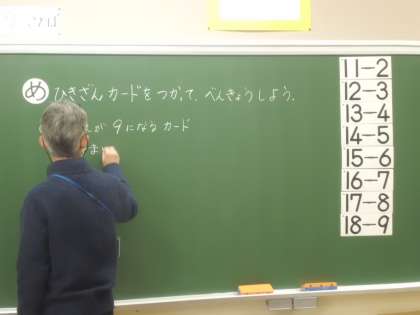 め ひきざんカードをつかって、べんきょうしよう。
えが9になるカード
ま
11-2
12-3
13-4
14-5
15-6
16-7
17-8
18-9